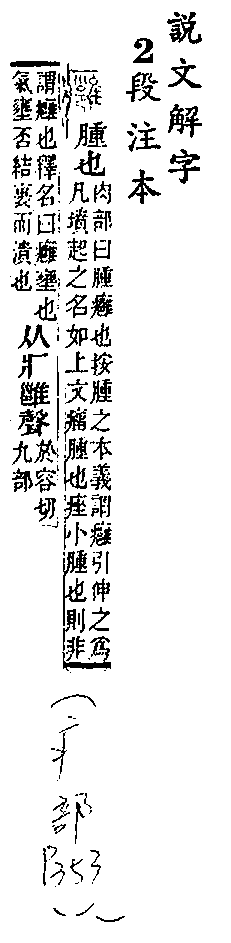 說文解字
2段注本
腫也
肉部曰腫癰也按腫之本義謂癰引伸之爲
凡墳起之名如上文瘤腫也痤小腫也則非
謂癰也釋名曰癰壅也
氣壅否結裹而潰也
从疒雝聲
於容切
九部
(疒部P353)